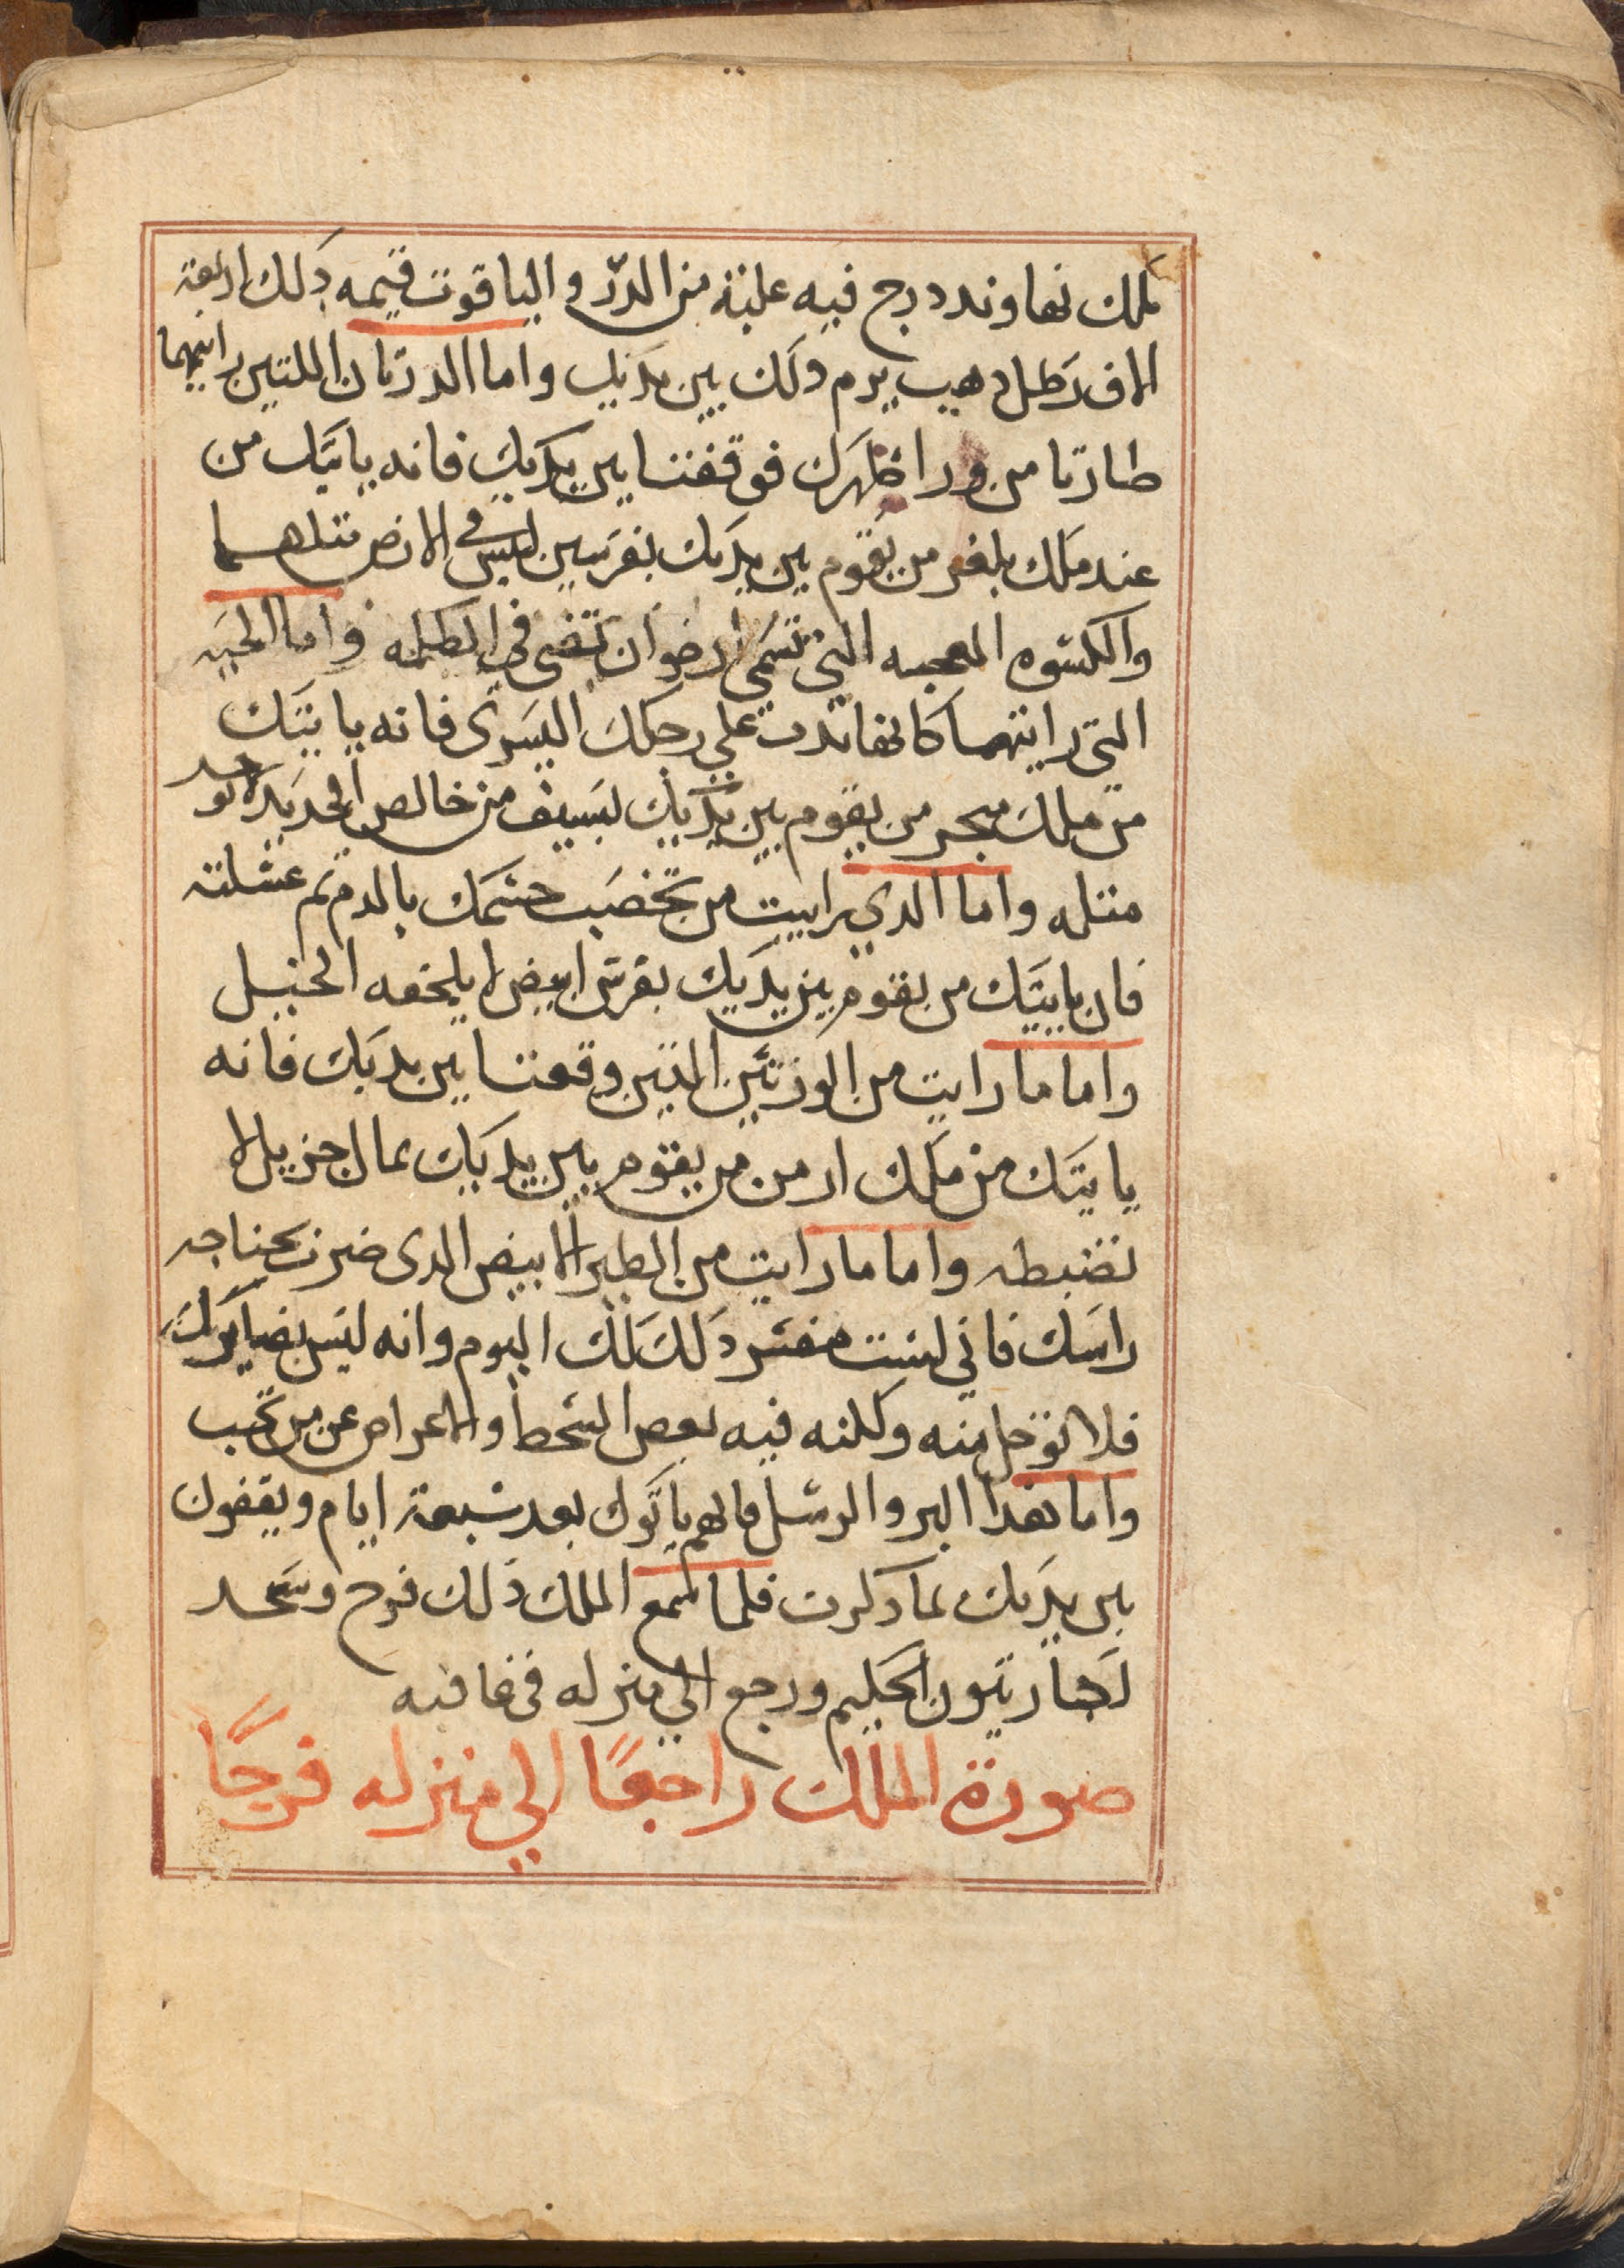 ملك نهاوند درج فيه علبة من الدرّ والياقوت قيمه دلك اربعة
الاف رطل دهب يرم دلك بين يديك واما الدرتان اللتين رايتهما
طارتا من ورا ظهرك فوقفتا بين يديك فانه ياتيك من
عند ملك بلغر من يقوم بين يديك بفرسين ليس في الارض متلهما
والكسوه المعجبه التي تسمى ارضوان تضي في الظلمه واما الحيه
التي رايتهما كانها تدب علي رجلك اليسرى فانه ياتيك
من ملك سجر من يقوم بين يديك بسيف من خالص الحديد لا توجد
متله واما الدي رايت من تخضب حسمك بالدم تم غسلته
فان ياتيك من يقوم بين يديك بفرس ابيض لا يلحقه الخيل
واما ما رايت من الوزتين التين وقعتا بين يديك فانه
ياتيك من ملك ارمن من يقوم بين يديك بمال جزيل لا
تضبطه واما ما رايت من الطير الابيض الدى ضرب بجناحه
راسك فاني لست مفسر دلك لك اليوم وانه ليس بضايرك
فلا توجل منه ولكنه فيه بعض السخط والاعراض عن من تحب
واما هذا البر والرسل فانهم ياتوك بعد سبعة ايام ويقفون
بين يديك بما دكرت فلما سمع الملك ذلك فرح وسجد
لكبارتيون الحكيم ورجع الي منزله في عافيه
صورة الملك راجعًا الي منزله فرحًا